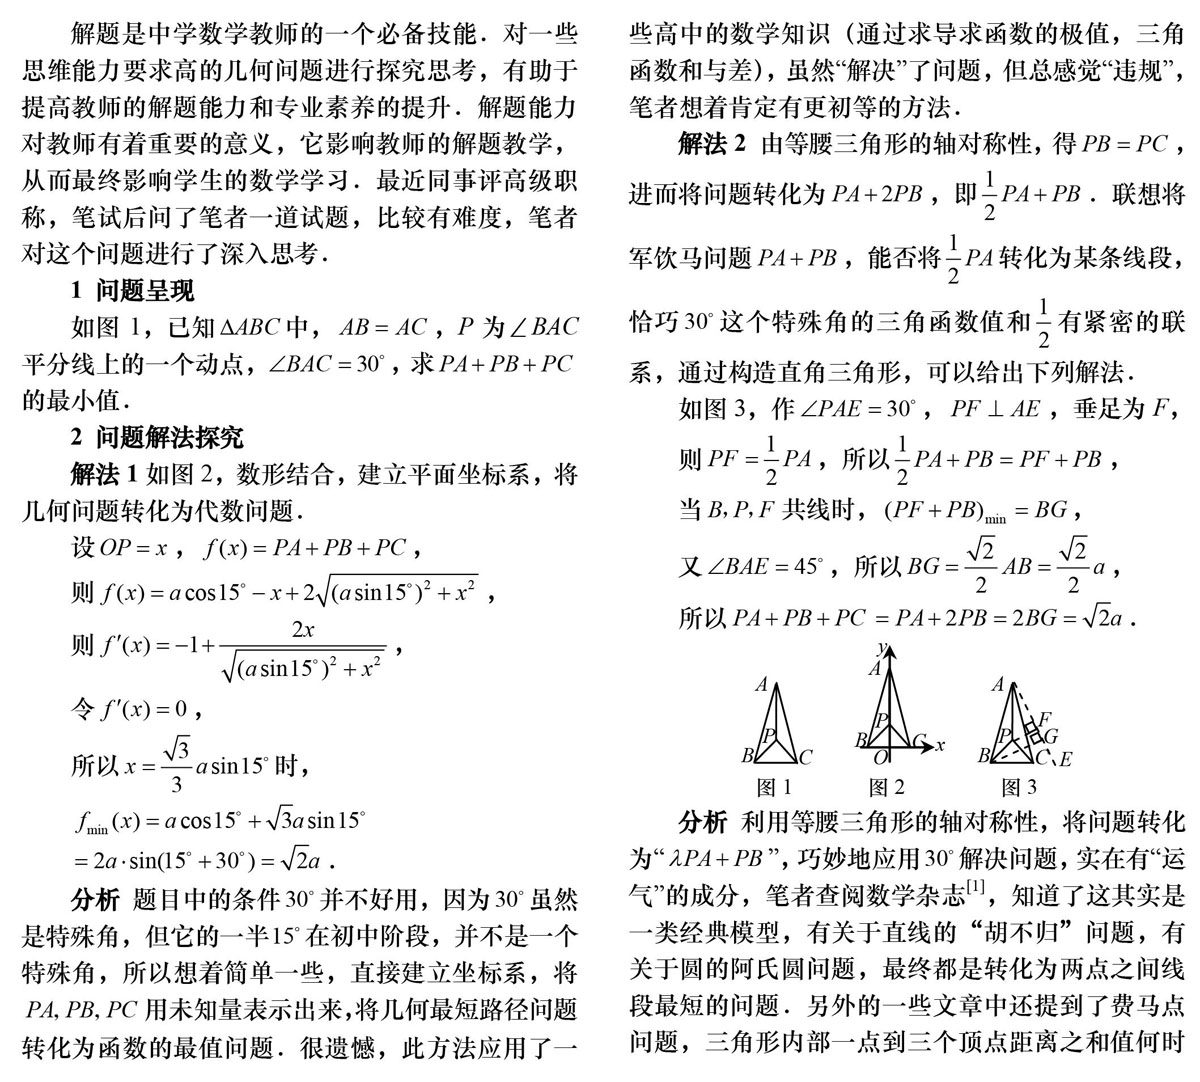 解题是中学数学教师的一个必备技能．对一些
思维能力要求高的几何问题进行探究思考，有助于
提高教师的解题能力和专业素养的提升．解题能力
对教师有着重要的意义，它影响教师的解题教学，
从而最终影响学生的数学学习．最近同事评高级职
称，笔试后问了笔者一道试题，比较有难度，笔者
对这个问题进行了深入思考．
1 问题呈现
如图 1，已知 ΔABC 中， AB = AC ，P 为∠BAC
平分线上的一个动点，∠BAC = 30° ，求 PA + PB + PC
的最小值．
2 问题解法探究
解法 1 如图 2，数形结合，建立平面坐标系，将
几何问题转化为代数问题．
设 OP = x ， f(x) = PA + PB + PC ，
则 f(x) = a cos15° − x + 2√((a sin15°)² + x²) ，
则 f′(x) = −1 + 2x/√((a sin15°)² + x²) ，
令 f′(x) = 0 ，
所以 x = √3/3 a sin15° 时，
f_min(x) = a cos15° + √3a sin15°
= 2a · sin(15° + 30°) = √2a ．
分析 题目中的条件 30° 并不好用，因为 30° 虽然
是特殊角，但它的一半15° 在初中阶段，并不是一个
特殊角，所以想着简单一些，直接建立坐标系，将
PA, PB, PC 用未知量表示出来，将几何最短路径问题
转化为函数的最值问题．很遗憾，此方法应用了一
些高中的数学知识（通过求导求函数的极值，三角
函数和与差），虽然“解决”了问题，但总感觉“违规”，
笔者想着肯定有更初等的方法．
解法 2 由等腰三角形的轴对称性，得 PB = PC ，
进而将问题转化为 PA + 2PB ，即 1/2 PA + PB ．联想将
军饮马问题 PA + PB ，能否将 1/2 PA 转化为某条线段，
恰巧 30° 这个特殊角的三角函数值和 1/2 有紧密的联
系，通过构造直角三角形，可以给出下列解法．
如图 3，作 ∠PAE = 30° ， PF ⊥ AE ，垂足为 F，
则 PF = 1/2 PA ，所以 1/2 PA + PB = PF + PB ，
当 B, P, F 共线时， (PF + PB)_min = BG ，
又 ∠BAE = 45° ，所以 BG = √2/2 AB = √2/2 a ，
所以 PA + PB + PC = PA + 2PB = 2BG = √2a ．
A
P
B
C
图 1
y
A
P
B
C
O
x
图 2
A
F
P
G
B
C
E
图 3
分析 利用等腰三角形的轴对称性，将问题转化
为“ λPA + PB ”，巧妙地应用 30° 解决问题，实在有“运
气”的成分，笔者查阅数学杂志[1]，知道了这其实是
一类经典模型，有关于直线的“胡不归”问题，有
关于圆的阿氏圆问题，最终都是转化为两点之间线
段最短的问题．另外的一些文章中还提到了费马点
问题，三角形内部一点到三个顶点距离之和值何时